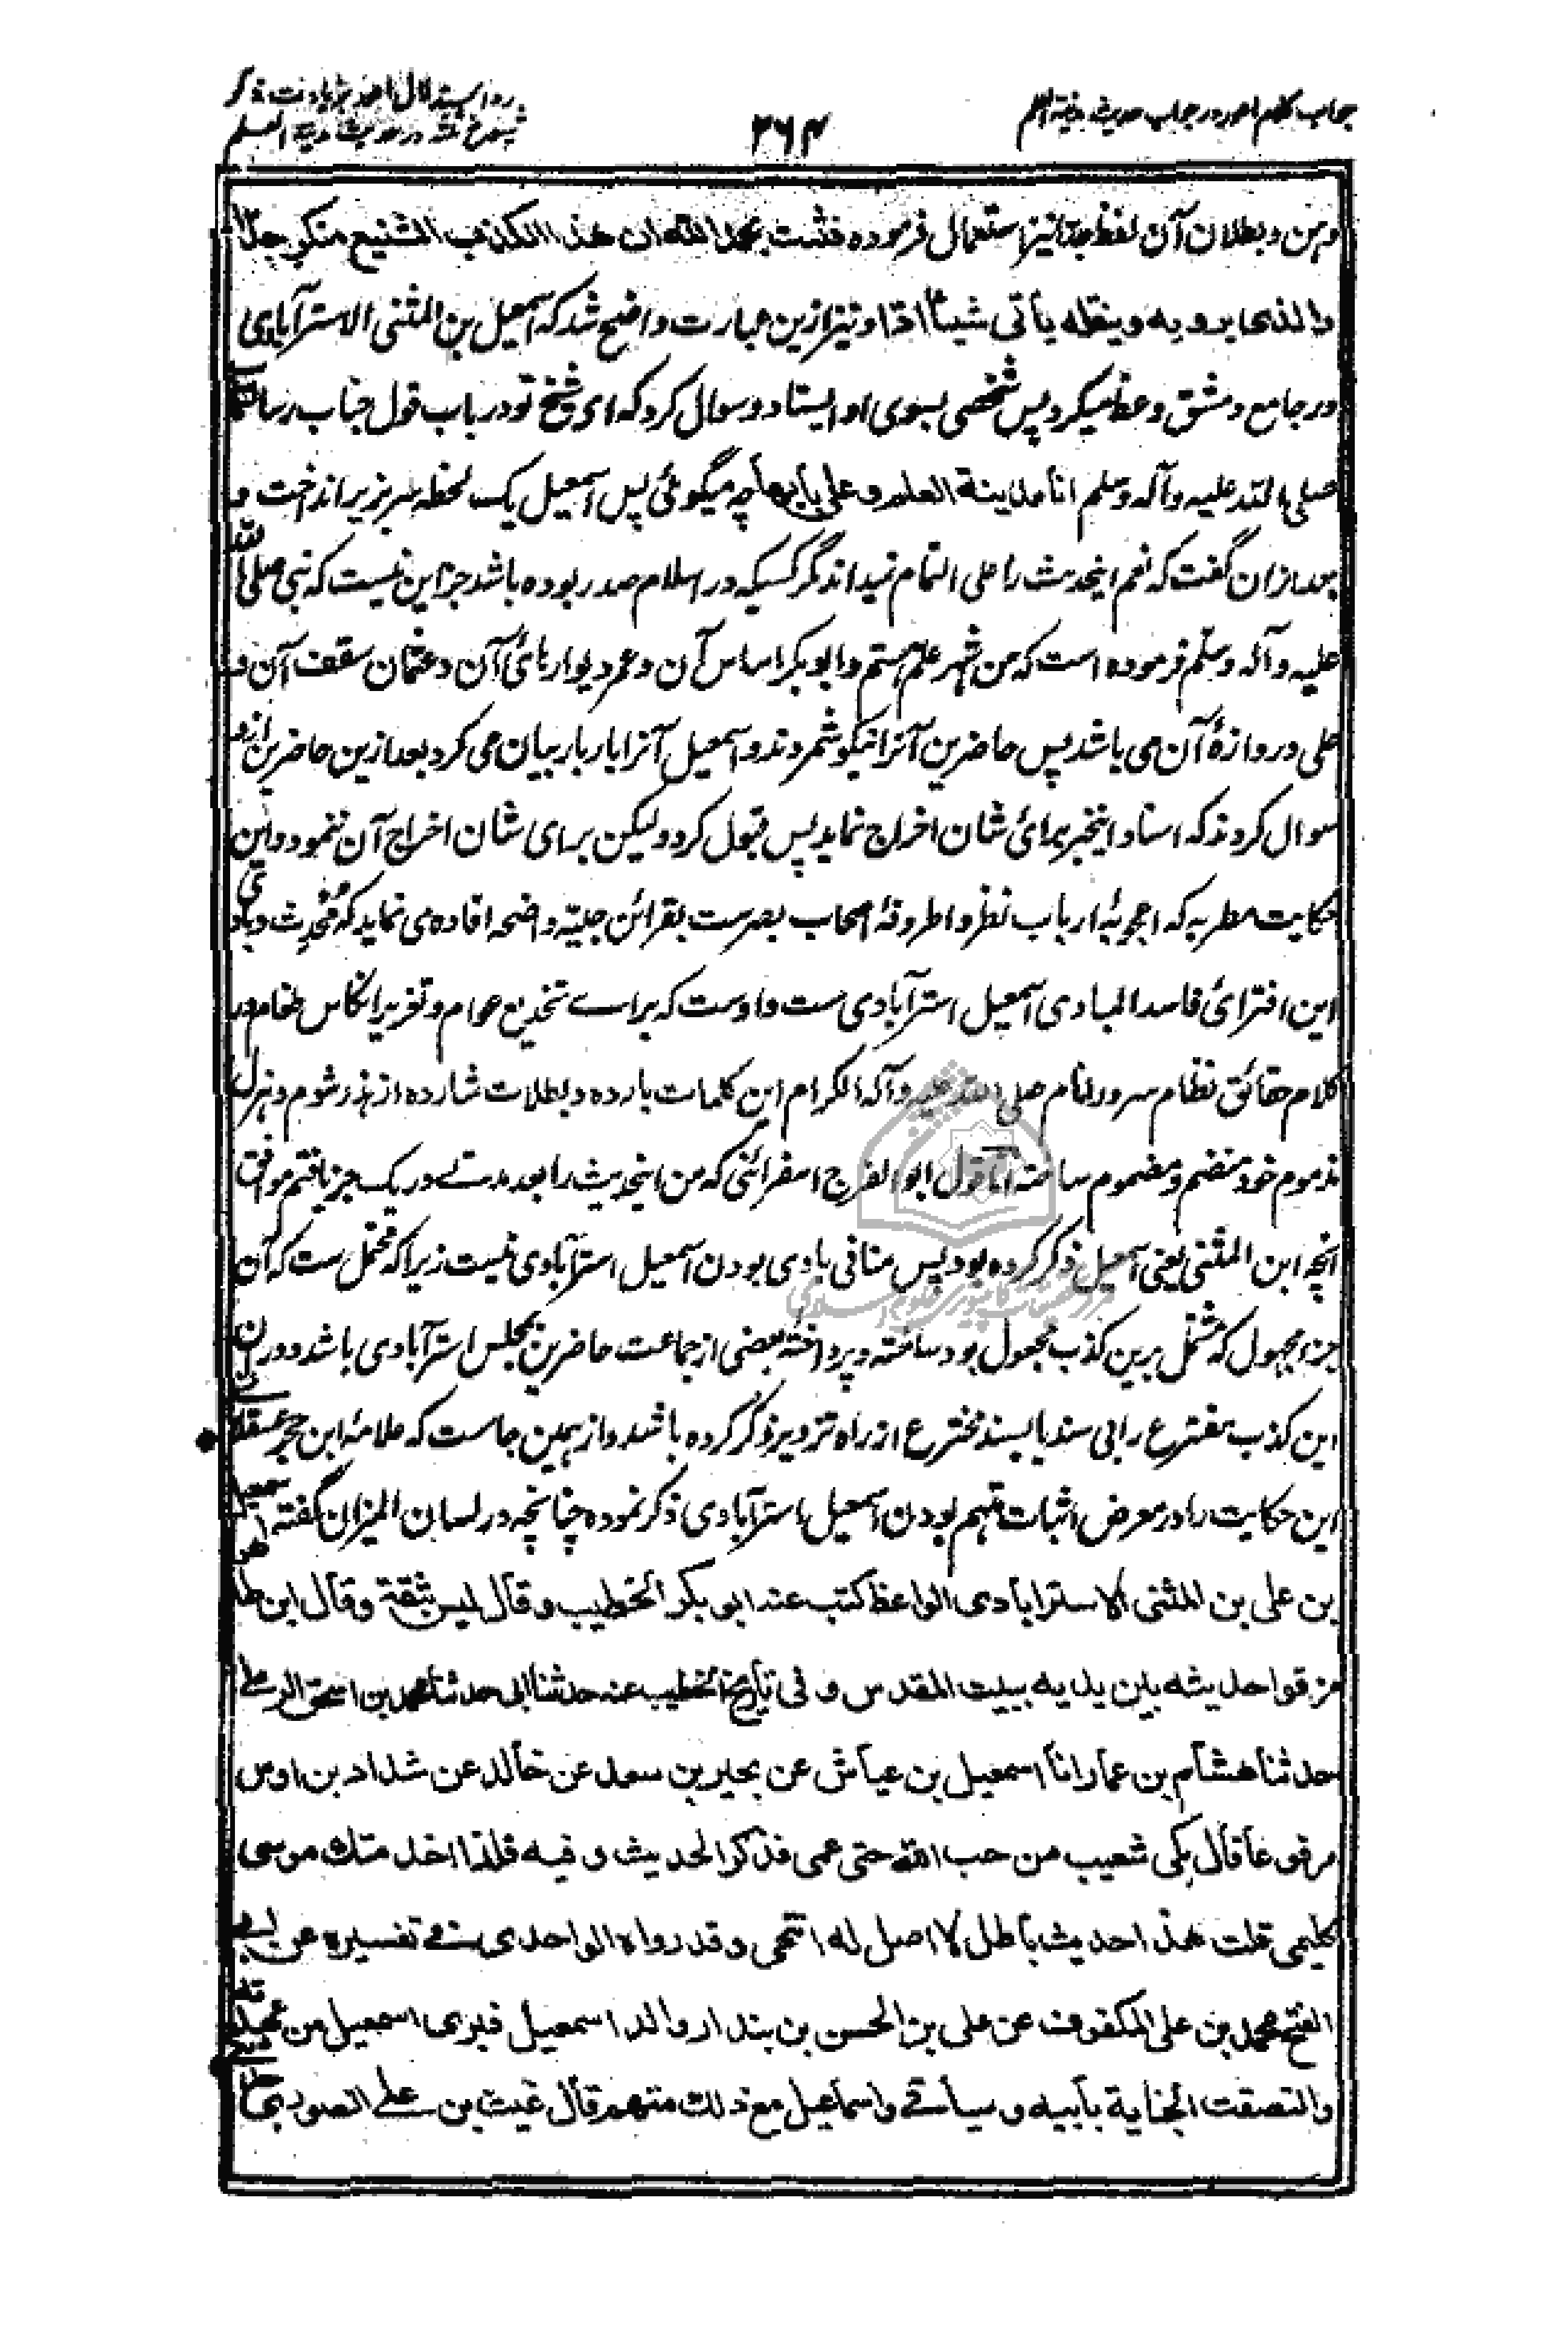 جواب کلام اعور در جواب حدیث مدینة العلم
۲۶۴
رد استدلال اعور بزیادت
در حدیث مدینة العلم
وهن و بطلان آن لفظ جدا نیز استعمال فرموده فثبت بحمد الله ان هذا الکذب الشنیع منکر جدا
والذی یرویه وینقله یأتی شیئا ادّا و نیز ازین عبارت واضح شد که اسمعیل بن المثنی الاسترآبادی
در جامع دمشق وعظ میکرد پس شخصی بسوی او ایستاد و سوال کرد که ای شیخ تو در باب قول جناب رسالتمآب
صلی الله علیه وآله وسلم انا مدینة العلم وعلی بابها چه میگوئی پس اسمعیل یک لحظه سر بزیر انداخت و
بعد ازان گفت که نعم اینحدیث را علی التمام نمیداند مگر کسیکه در اسلام صدر بوده باشد جز این نیست که نبی صلی الله
علیه وآله وسلم فرموده است که من شهر علم هستم و ابو بکر اساس آن و عمر دیوارهای آن و عثمان سقف آن و
علی دروازهٔ آن می باشد پس حاضرین آنرا نیکو شمردند و اسمعیل آنرا بار بار بیان می کرد بعد ازین حاضرین ازو
سوال کردند که اسناد اینخبر برای شان اخراج نماید پس قبول کرد ولیکن برای شان اخراج آن ننمود و این
حکایت مطربه که اعجوبهٔ ارباب نظر و اطروفهٔ اصحاب بصرست بقرائن جلیّه واضحه افاده می نماید که محدث و بادی
این افترای فاسد المبادی اسمعیل استرآبادی ست و اوست که برای تخدیع عوام و تغریر انکاس طغام در
کلام حقائق نظام سرور انام صلی الله علیه وآله الکرام این کلمات بارده و بطلات شارده از هذر شوم و هزل
مذموم خود منضم و مضموم ساخته اما قول ابو الفرج اسفرائنی که من اینحدیث را بعد مدتے در یک جز یافتم موافق
آنچه ابن المثنی یعنی اسمعیل ذکر کرده بود پس منافی بادی بودن اسمعیل استرآبادی نیست زیرا که محتمل ست که آن
جزء مجهول که مشتمل برین کذب مجعول بود ساخته و پرداخته بعضی از جماعت حاضرین مجلس استرآبادی باشد و دران
این کذب مفترع را بی سند یا بسند مخترع از راه تزویر ذکر کرده باشد و از همین جاست که علامهٔ ابن حجر عسقلانی
این حکایت را در معرض اثبات متهم بودن اسمعیل استرآبادی ذکر نموده چنانچه در لسان المیزان گفته اسمعیل
بن علی بن المثنی الاسترابادی الواعظ کتب عنه ابو بکر الخطیب وقال لیس بثقة وقال ابن طاهر
مزقوا حدیثه بین یدیه ببیت المقدس وفی تاریخ الخطیب عنه حدثنا ابی حدثنا محمد بن اسحق الرملی
حدثنا هشام بن عمار انا اسمعیل بن عیاش عن بحیر بن سعد عن خالد عن شداد بن اوس
مرفوعا قال بکی شعیب من حب الله حتی عمی فذکر الحدیث وفیه فلذا اخدمتک موسی
کلیمی قلت هذا حدیث باطل لا اصل له انتهی وقد رواه الواحدی فی تفسیره عن ابی
الفتح محمد بن علی المکفوف عن علی بن الحسن بن بندار والد اسمعیل فبری اسمعیل من عهدته
والتصقت الجنایة بابیه وسیأتی واسماعیل مع ذلک متهم قال غیث بن علی الصوری